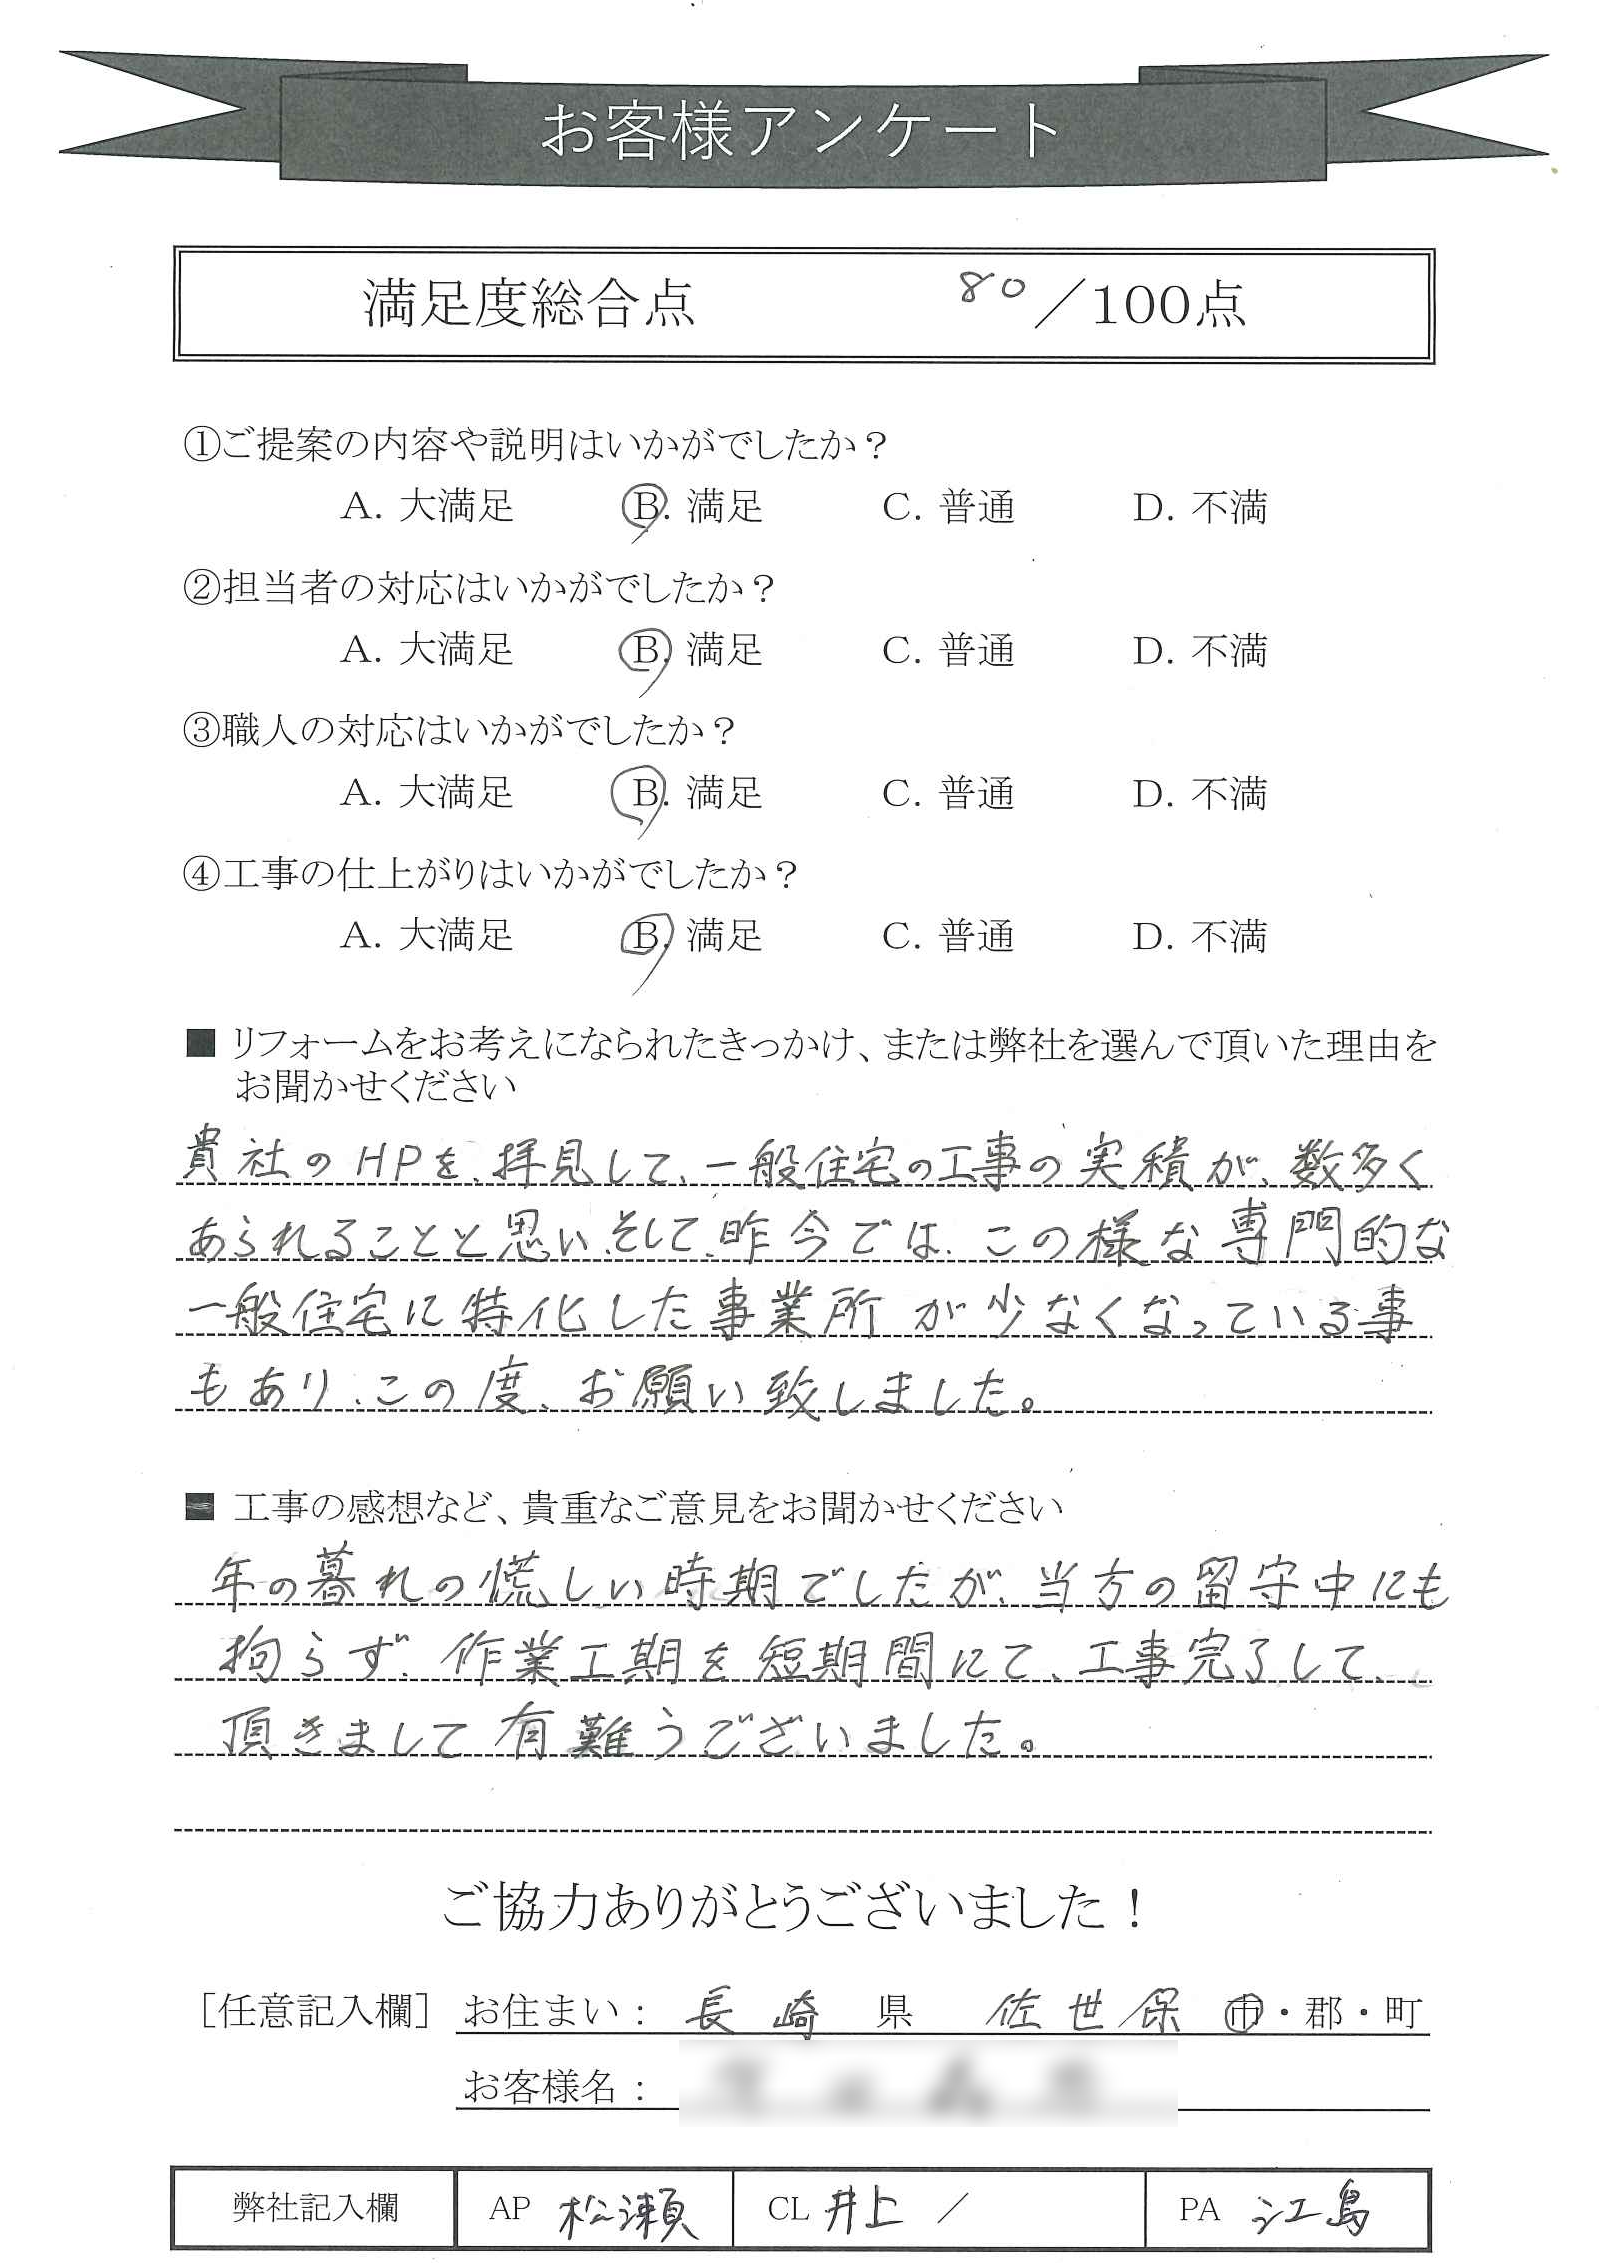 お客様アンケート
満足度総合点 80／100点
①ご提案の内容や説明はいかがでしたか？
A. 大満足 B. 満足 C. 普通 D. 不満
②担当者の対応はいかがでしたか？
A. 大満足 B. 満足 C. 普通 D. 不満
③職人の対応はいかがでしたか？
A. 大満足 B. 満足 C. 普通 D. 不満
④工事の仕上がりはいかがでしたか？
A. 大満足 B. 満足 C. 普通 D. 不満
■ リフォームをお考えになられたきっかけ、または弊社を選んで頂いた理由を
お聞かせください
貴社のHPを、拝見して、一般住宅の工事の実積が、数多く
あられることと思い、そして、昨今では、この様な専門的な
一般住宅に特化した事業所が少なくなっている事
もあり、この度、お願い致しました。
■ 工事の感想など、貴重なご意見をお聞かせください
年の暮れの慌しい時期でしたが、当方の留守中にも
拘らず、作業工期を短期間にて、工事完了して、
頂きまして有難うございました。
ご協力ありがとうございました！
［任意記入欄］ お住まい： 長崎 県 佐世保 市・郡・町
お客様名：
弊社記入欄 AP 松瀬 CL 井上 ／ PA 江島